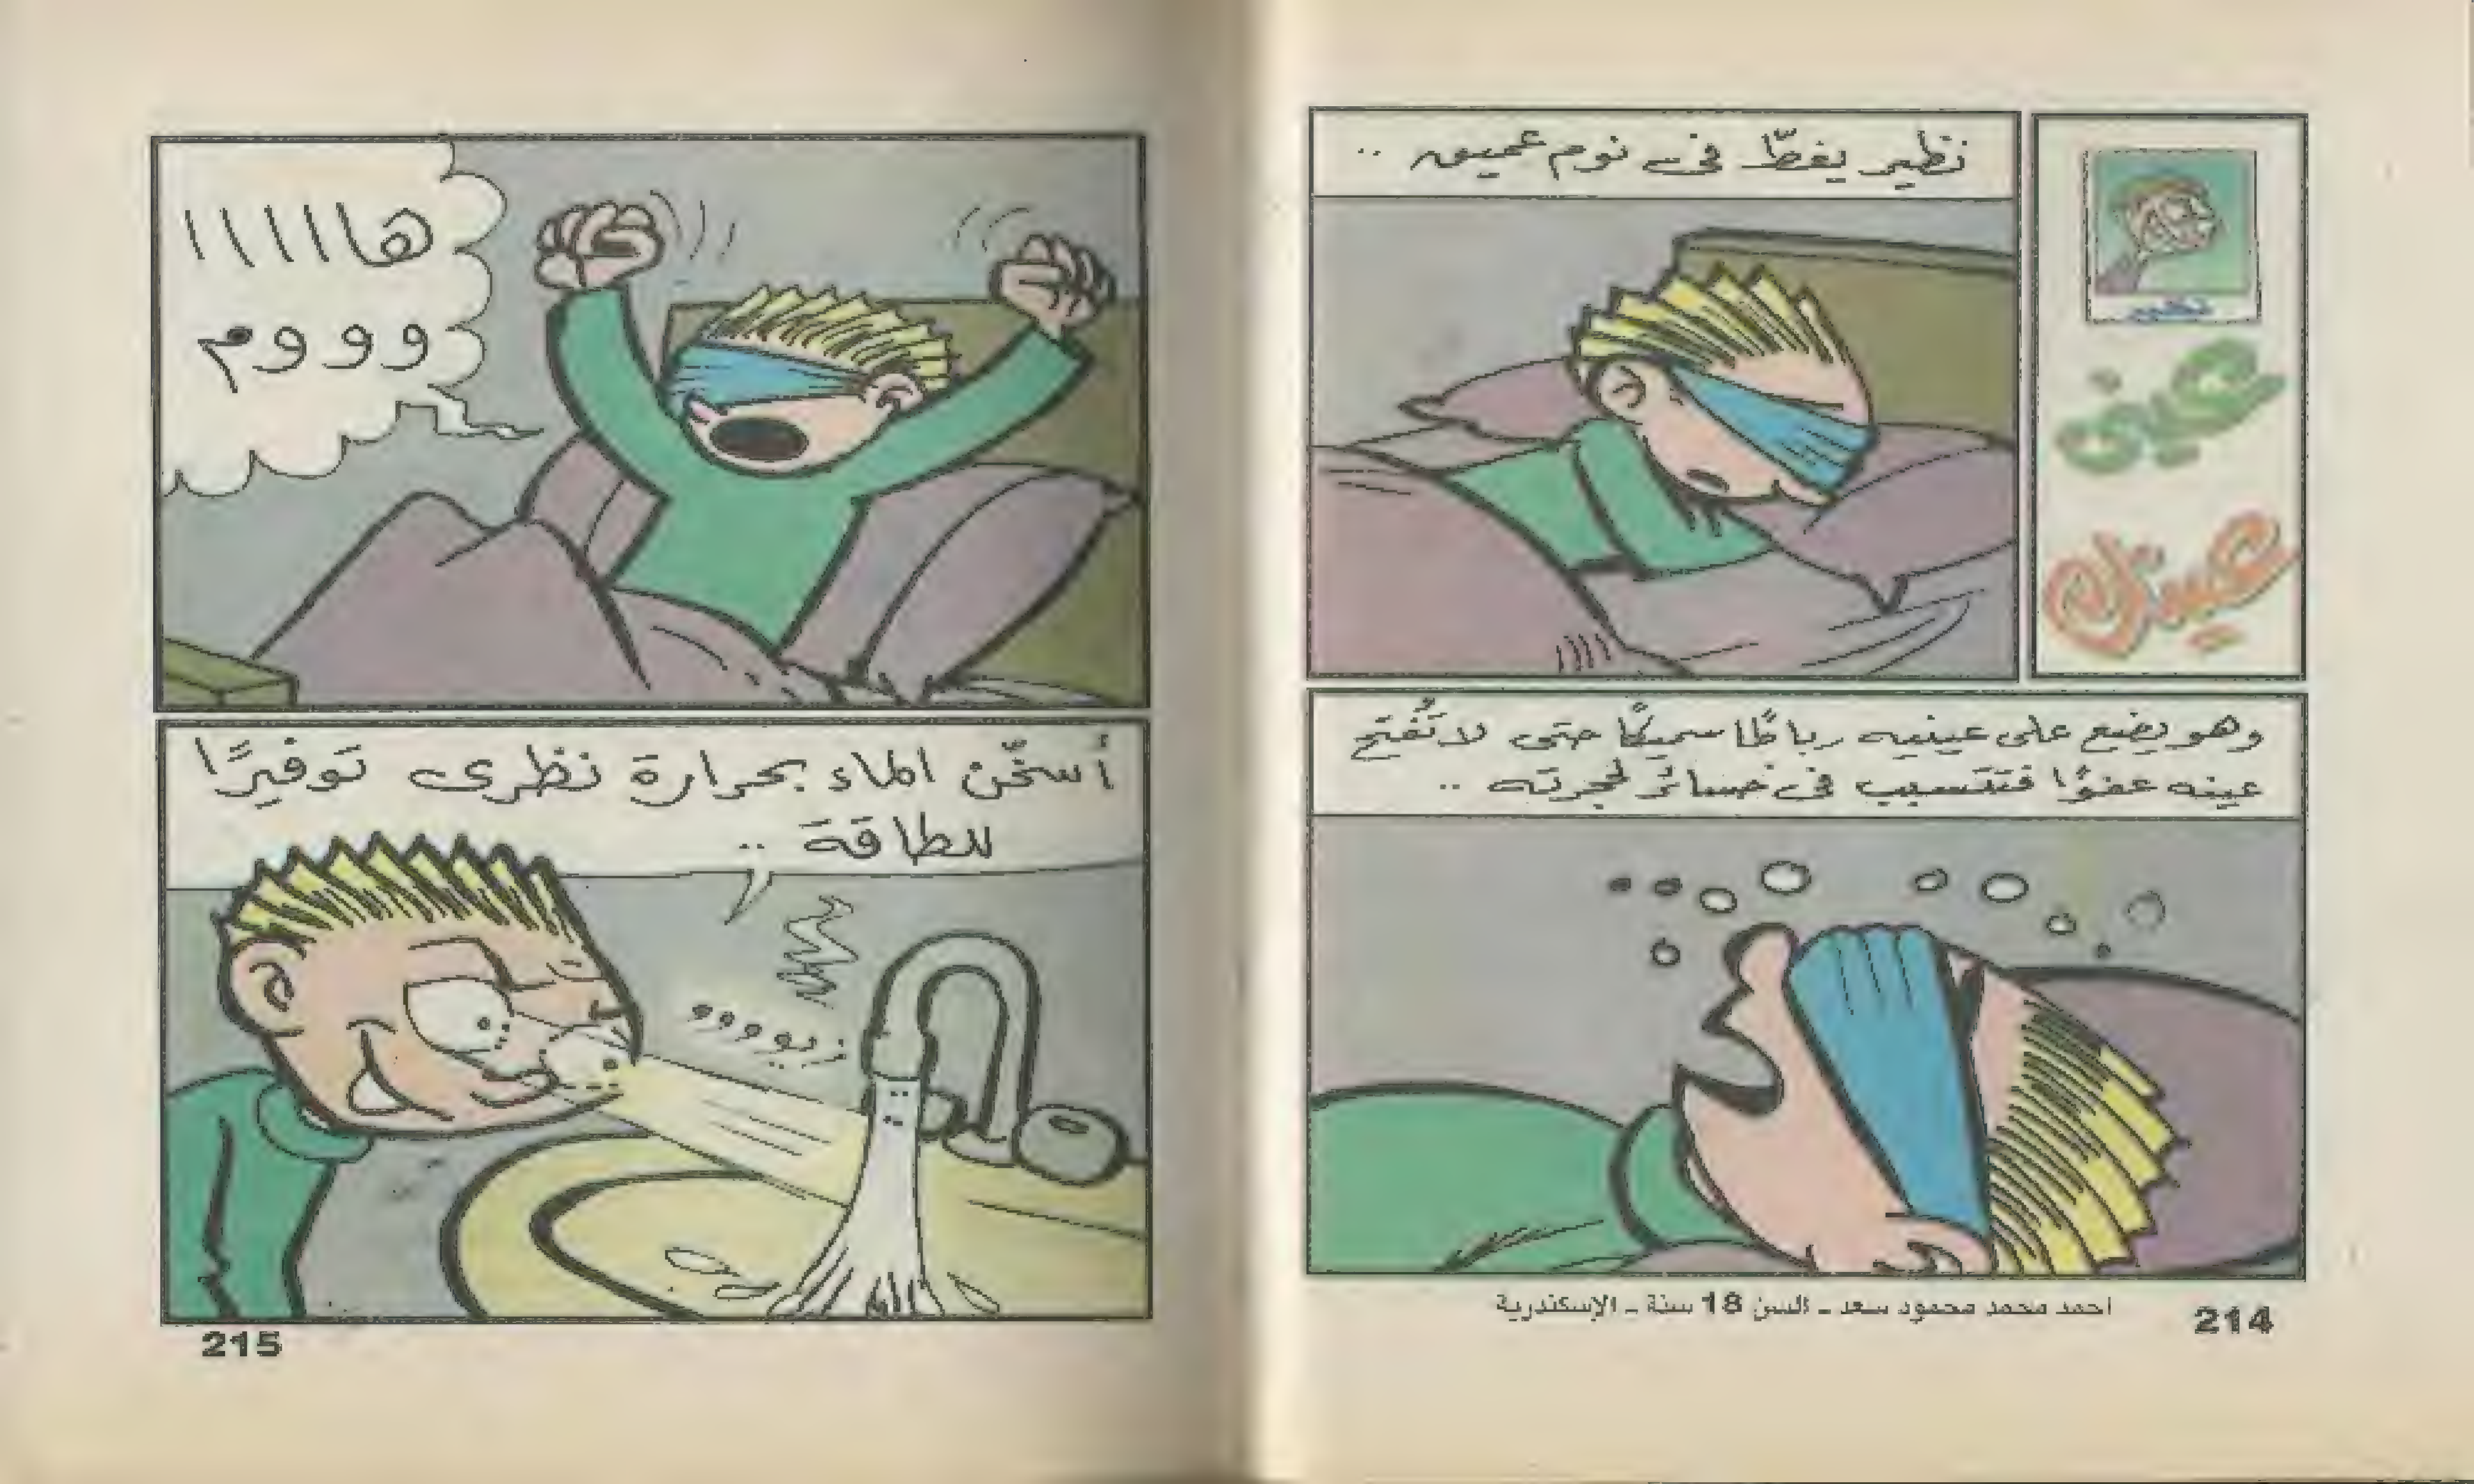 نظير
عينى
عينك
نظير يغطّ فى نوم عميق ..
وهو يضع على عينيه رباطًا سميكًا حتى لا تُفتح
عينه عفوًا فتتسبب فى خسائر لحجرته ..
أحمد محمد محمود سعد - السن 18 سنة - الإسكندرية
214
هااااا
وووم
أسخّن الماء بحرارة نظرى توفيرًا
للطاقة ..
زيوووو
215